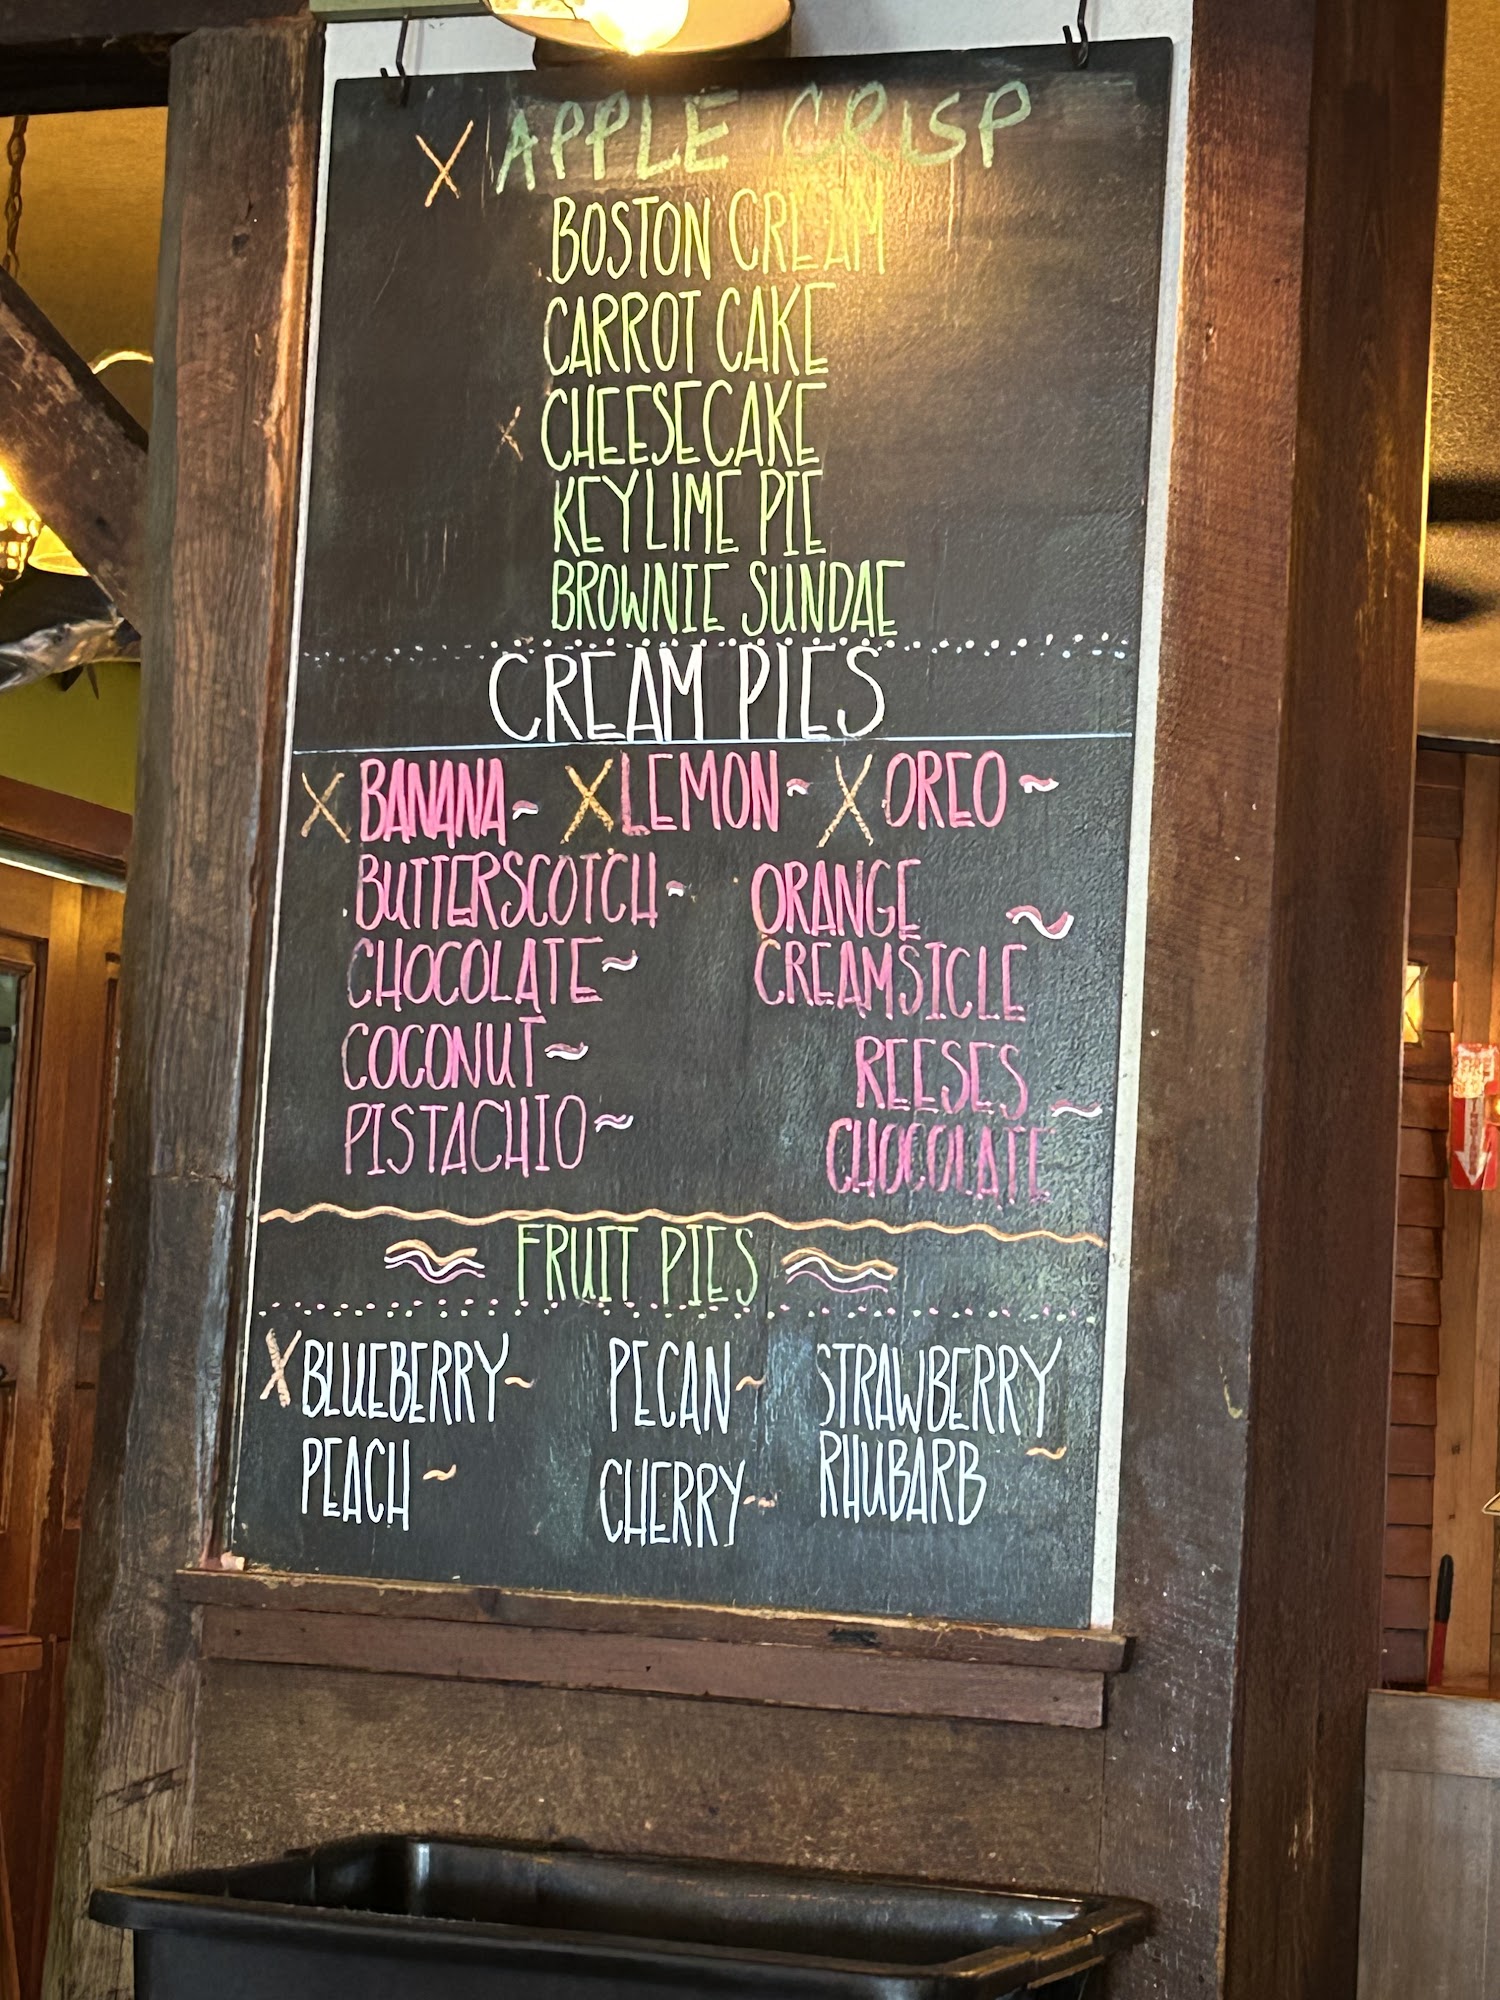 X APPLE CRISP
BOSTON CREAM
CARROT CAKE
X CHEESECAKE
KEYLIME PIE
BROWNIE SUNDAE
CREAM PIES
X BANANA~ X LEMON~ X OREO~
BUTTERSCOTCH~ ORANGE ~
CHOCOLATE~ CREAMSICLE
COCONUT~ REESES ~
PISTACHIO~ CHOCOLATE
FRUIT PIES
X BLUEBERRY~ PECAN~ STRAWBERRY
PEACH ~ CHERRY~ RHUBARB ~